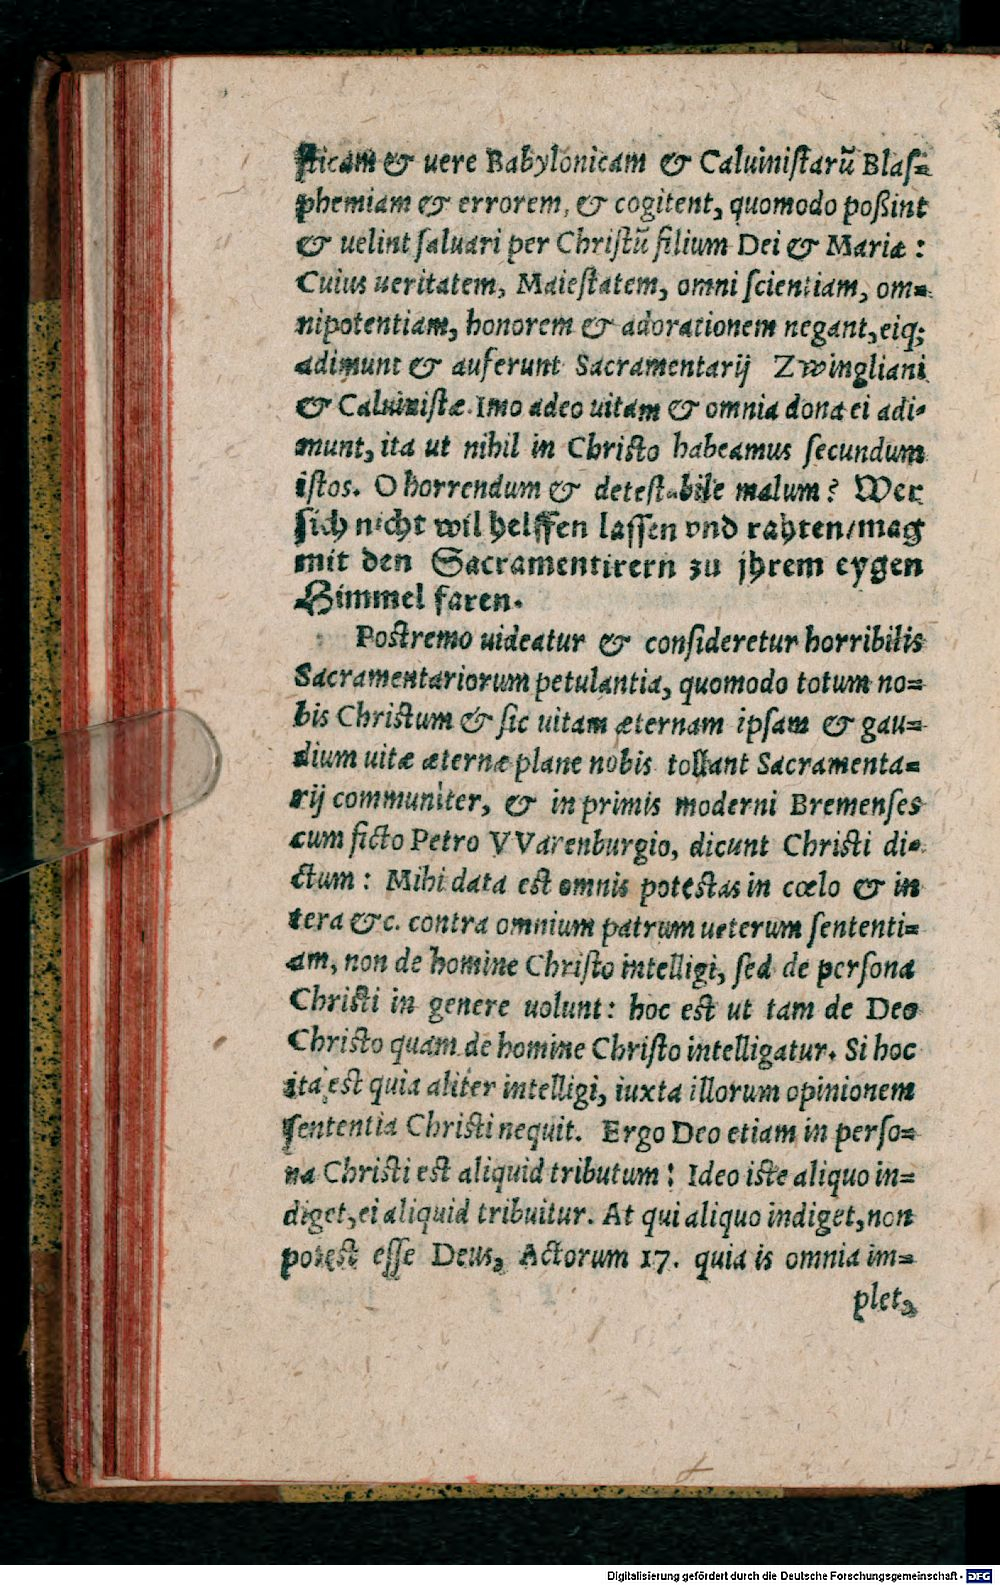 sticam & uere Babylonicam & Caluinistarũ Blas=
phemiam & errorem, & cogitent, quomodo poßint
& uelint saluari per Christũ filium Dei & Mariæ :
Cuius ueritatem, Maiestatem, omni scientiam, om=
nipotentiam, honorem & adorationem negant, eiq;
adimunt & auferunt Sacramentarij Zwingliani
& Caluinistæ. Imo adeo uitam & omnia dona ei adi=
munt, ita ut nihil in Christo habeamus secundum
istos. O horrendum & detestabile malum? Wer
sich nicht wil helffen lassen vnd rahten/mag
mit den Sacramentirern zu jhrem eygen
Himmel faren.
Postremo uideatur & consideretur horribilis
Sacramentariorum petulantia, quomodo totum no=
bis Christum & sic uitam æternam ipsam & gau=
dium uitæ æternæ plane nobis tollant Sacramenta=
rij communiter, & in primis moderni Bremenses
cum ficto Petro VVarenburgio, dicunt Christi di=
ctum : Mihi data est omnis potestas in cœlo & in
tera &c. contra omnium patrum ueterum sententi=
am, non de homine Christo intelligi, sed de persona
Christi in genere uolunt: hoc est ut tam de Deo
Christo quam de homine Christo intelligatur. Si hoc
ita est quia aliter intelligi, iuxta illorum opinionem
sententia Christi nequit. Ergo Deo etiam in perso=
na Christi est aliquid tributum! Ideo iste aliquo in=
diget, ei aliquid tribuitur. At qui aliquo indiget, non
potest esse Deus, Actorum 17. quia is omnia im=
plet,
Digitalisierung gefördert durch die Deutsche Forschungsgemeinschaft - DFG